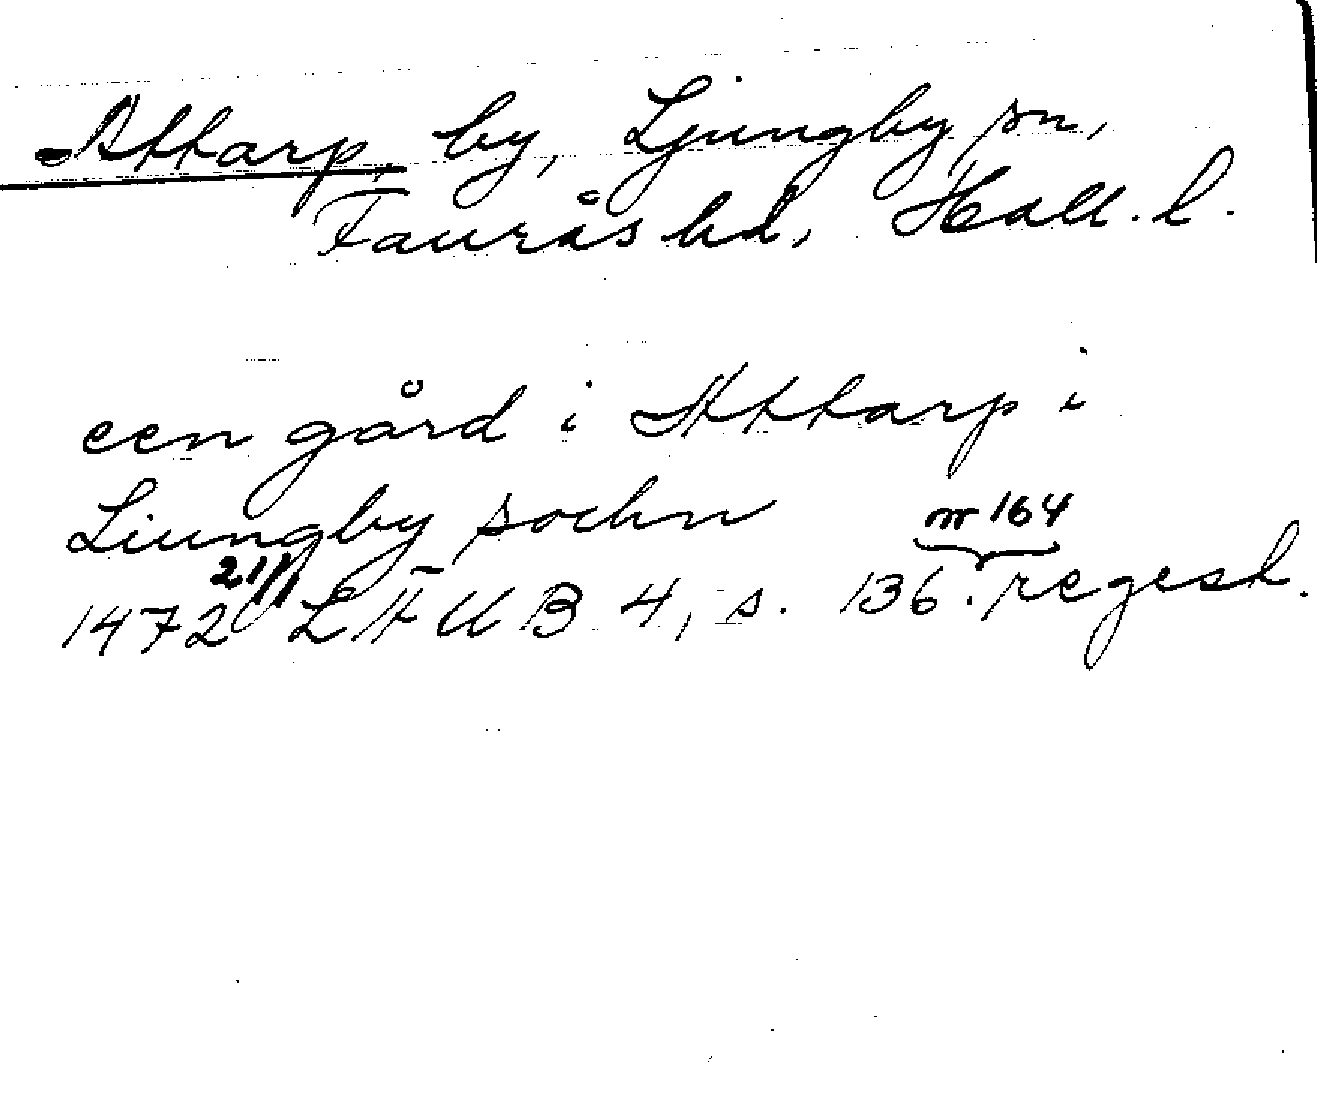 Ättarp, by, Ljungby sn,
Faurås hd, Hall. l.
een gård i Attarp i
Liungby sochn
nr 164
1472 21/1 LÄUB 4, s. 136. regest.